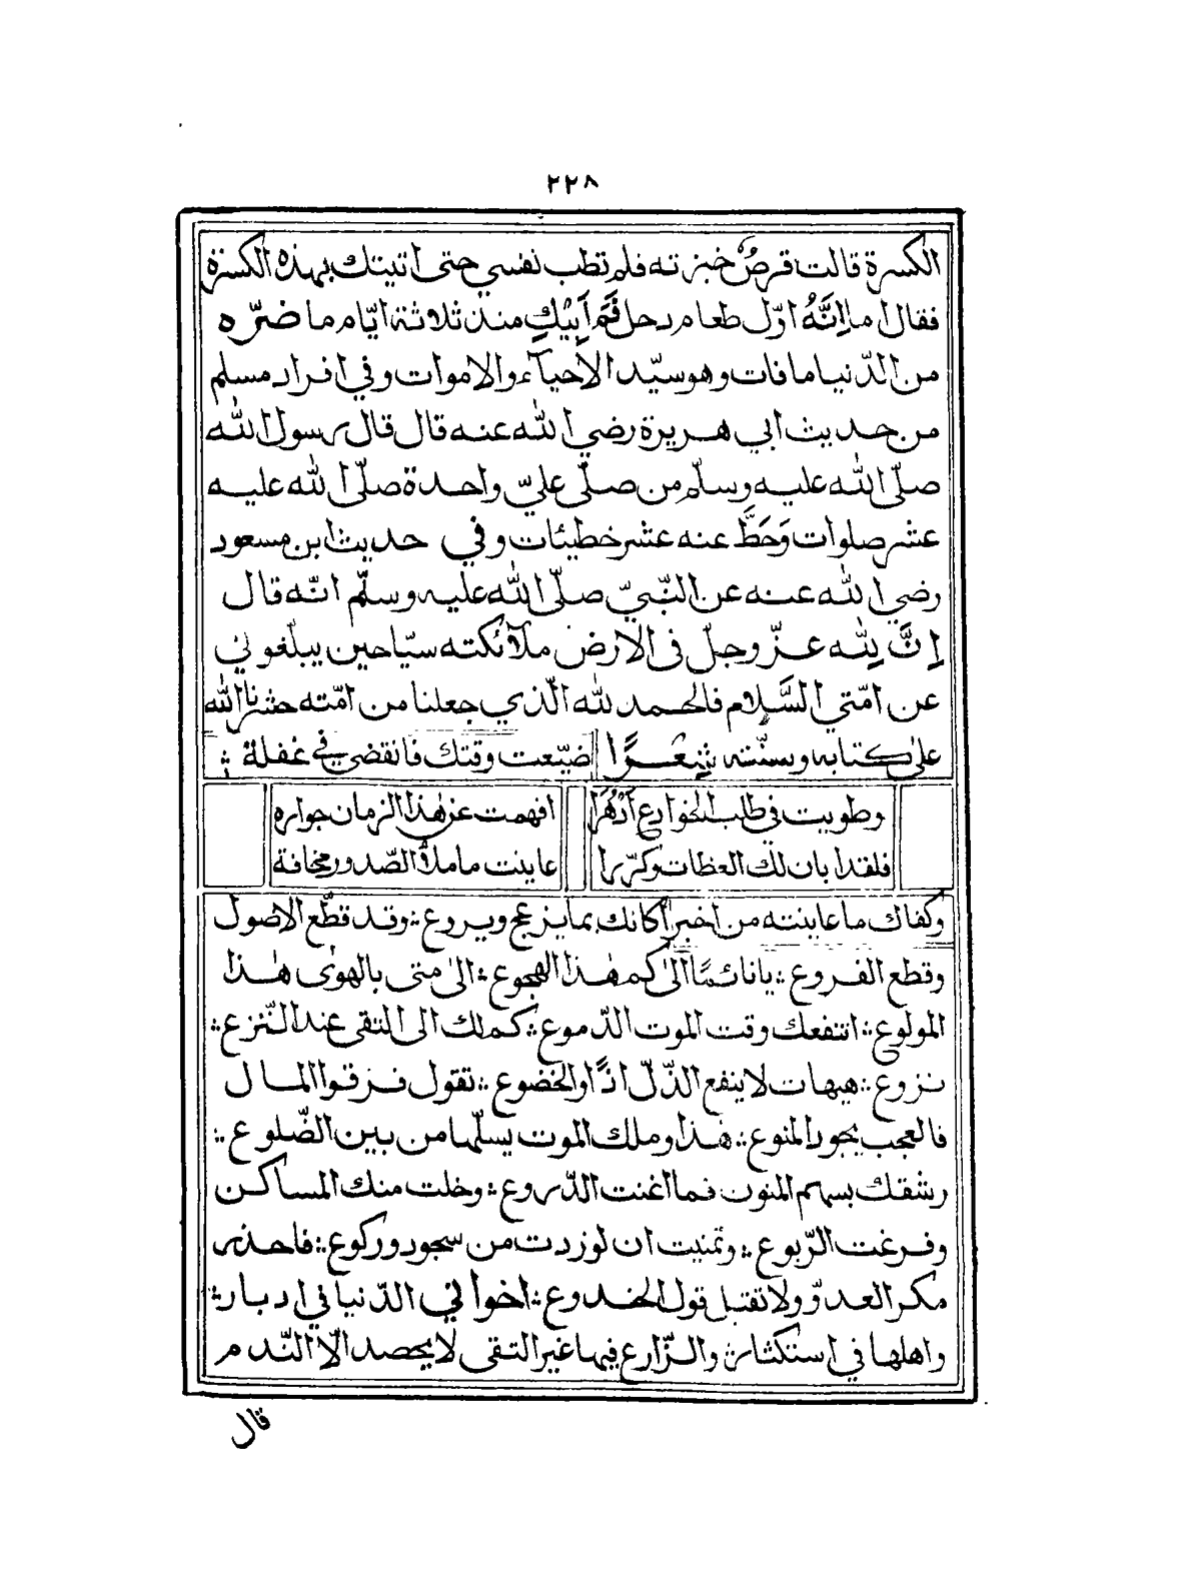 ٢٢٨
الكسرة قالت قرصٌ خبزته فلم تطب نفسي حتى اتيتك بهذه الكسرة
فقال اما اِنَّهُ اوّل طعام دخل فَمَ اَبِيْكِ منذ ثلاثة ايّام ما ضرّه
من الدّنيا ما فات وهو سيّد الاحيآء والاموات وفي افراد مسلم
من حديث ابي هريرة رضي الله عنه قال قال رسول الله
صلّى الله عليه وسلّم من صلّى عليّ واحدة صلّى الله عليه
عشر صلوات وَحَطَّ عنه عشر خطيئات وفي حديث ابن مسعود
رضي الله عنه عن النّبيّ صلّى الله عليه وسلّم انّه قال
اِنَّ لِلّٰه عزّ وجلّ فى الارض ملآئكته سيّاحين يبلّغوني
عن امّتي السَّلام فالحمد لله الّذي جعلنا من امّته حشرنا الله
على كتابه وسنّته شِعْرًا ضيّعت وقتك فانقضى في غفلة ؛
وطويت في طلب الخوادع اَدْهُرَا افهمت عن هٰذا الزمان جواره
فلقد ابان لك العظات وكرّرا عاينت ما ملأ الصّدور مخافة
وكفاك ما عاينته من اخبرا كانك بما يزعج ويروع ؛ وقد قطّع الاصول
وقطع الفروع ؛ يا نائمًا الىٰ كم هٰذا الهجوع ؛ الىٰ متى بالهوٰى هٰذا
المولوع ؛ اتنفعك وقت الموت الدّموع ؛ كم لك الى التقى عند النّزع ؛
نزوع ؛ هيهات لا ينفع الذّلّ اذًا والخضوع ؛ تقول فرّقوا المال
فالعجب يجود المنوع ؛ هٰذا وملك الموت يسلّها من بين الضّلوع ؛
رشقك بسهم المنون فما اغنت الدّروع ؛ وخلت منك المساكن
وفرغت الرّبوع ؛ وتمنيت ان لو زدت من سجود وركوع ؛ فاحذر
مكر العدوّ ولا تقبل قول الخدوع ؛ اخواني الدّنيا في ادبار ؛
واهلها في استكثار ؛ والزّارع فيها غير التقى لا يحصد الّا النّدم
قال